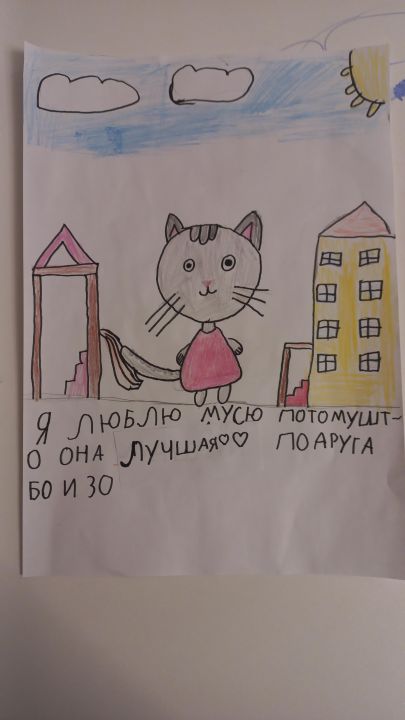 Я ЛЮБЛЮ МУСЮ ПОТОМУШТ-
О ОНА ЛУЧШАЯ♡♡ ПОАРУГА
БО И ЗО